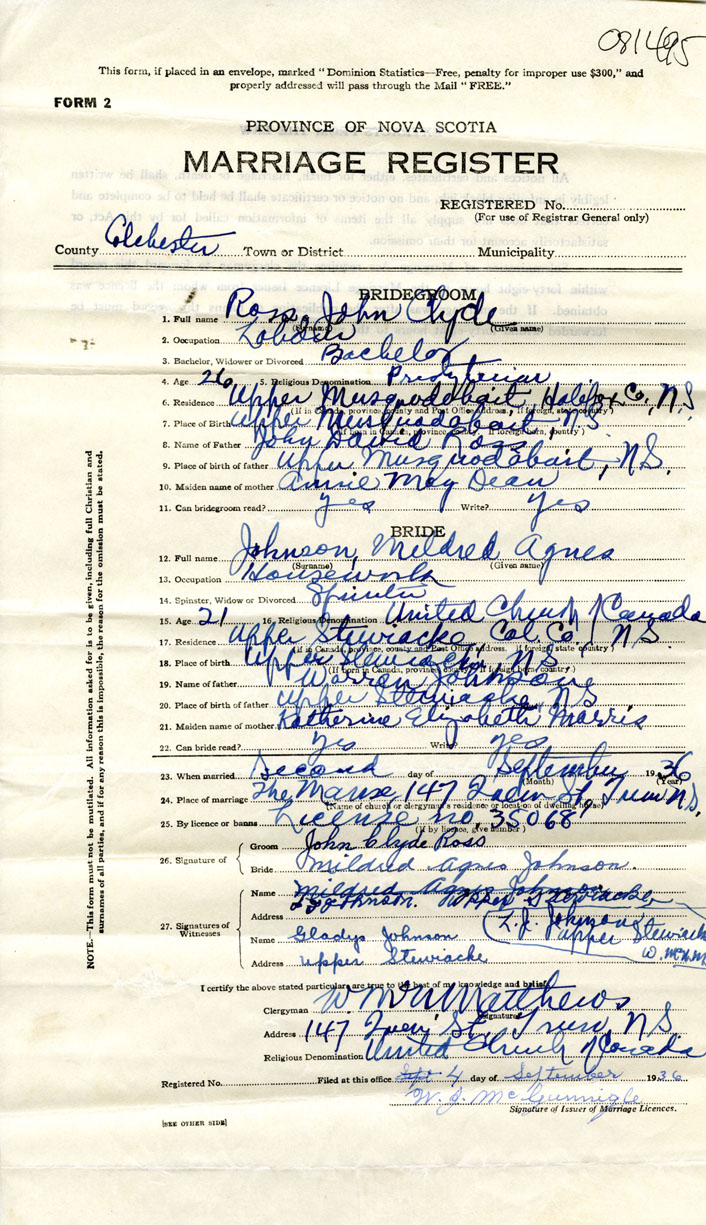 081495
This form, if placed in an envelope, marked "Dominion Statistics—Free, penalty for improper use $300," and
properly addressed will pass through the Mail "FREE."
FORM 2
PROVINCE OF NOVA SCOTIA
MARRIAGE REGISTER
REGISTERED No.
(For use of Registrar General only)
County Colchester Town or District Municipality
BRIDEGROOM
1. Full name Ross, John Clyde
(Surname) (Given name)
2. Occupation Labourer
3. Bachelor, Widower or Divorced Bachelor
4. Age 26 5. Religious Denomination Presbyterian
6. Residence Upper Musquodoboit, Halifax Co., N.S.
(If in Canada, province, county and Post Office address, if foreign, state country)
7. Place of Birth Upper Musquodoboit N.S.
(If born in Canada, province, county, if foreign born, country)
8. Name of Father John David Ross
9. Place of birth of father Upper Musquodoboit, N.S.
10. Maiden name of mother Annie May Dean
11. Can bridegroom read? yes Write? yes
BRIDE
12. Full name Johnson, Mildred Agnes
(Surname) (Given name)
13. Occupation Housework
14. Spinster, Widow or Divorced Spinster
15. Age 21 16. Religious Denomination United Church of Canada
17. Residence Upper Stewiacke Col. Co., N.S.
(If in Canada, province, county and Post Office address, if foreign, state country)
18. Place of birth Upper Stewiacke N.S.
(If born in Canada, province, county, if foreign born, country)
19. Name of father Warren Johnson
20. Place of birth of father Upper Stewiacke, N.S.
21. Maiden name of mother Katherine Elizabeth Harris
22. Can bride read? yes Write? yes
23. When married Second day of September 1936
(Month) (Year)
24. Place of marriage The Manse, 147 Queen St., Truro N.S.
(Name of church or clergyman's residence or location of dwelling house)
25. By licence or banns License no. 35068
(If by licence, give number)
26. Signature of
Groom John Clyde Ross
Bride Mildred Agnes Johnson.
27. Signatures of Witnesses
Name Mildred Agnes Johnson
Johnson. Upper Stewiacke
Address
L.J. Johnson
Upper Stewiacke
Name Gladys Johnson
Address Upper Stewiacke
I certify the above stated particulars are true to the best of my knowledge and belief.
Clergyman Matthews
(Signature)
Address 147 Queen St., Truro, N.S.
Religious Denomination United Church of Canada
Registered No. Filed at this office Sept 4 day of September 1936
W. J. McGunnigle
Signature of Issuer of Marriage Licences.
[SEE OTHER SIDE]
NOTE.—This form must not be mutilated. All information asked for is to be given, including full Christian and
surnames of all parties, and if for any reason this is impossible, the reason for the omission must be stated.